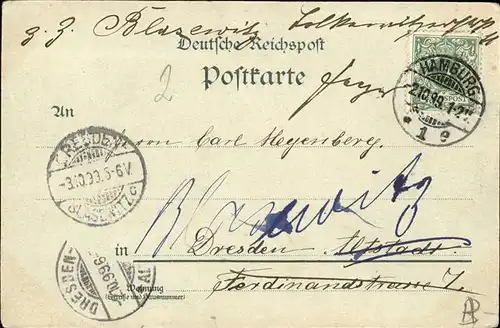 z. Z. Blasewitz,
Deutsche Reichspost
Postkarte
2
HAMBURG
2.10.99. 1-2N.
* 1 g
An
DRESDEN
-3.10.99.5-6V
Herrn Carl Heyenberg.
Blasewitz
in Dresden Altstadt
DRESDEN-
10.99.6-
Ferdinandstrasse 7.
Wohnung
(Straße und Hausnummer)